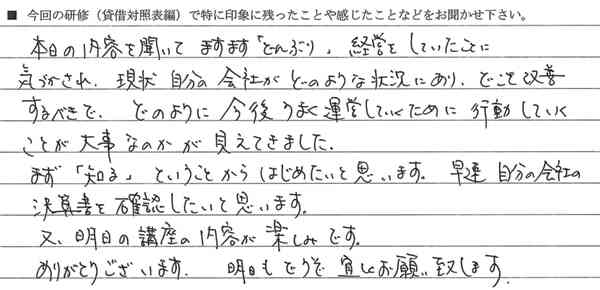 ■ 今回の研修（貸借対照表編）で特に印象に残ったことや感じたことなどをお聞かせ下さい。
本日の内容を聞いて ますます「どんぶり」経営をしていたことに
気づかされ、現状 自分の会社がどのような状況にあり、どこを改善
するべきで、どのように今後うまく運営していくために 行動していく
ことが大事なのかが見えてきました。
まず「知る」ということからはじめたいと思います。早速 自分の会社の
決算書を確認したいと思います。
又、明日の講座の内容が楽しみです。
ありがとうございます。 明日もどうぞ宜しくお願い致します。